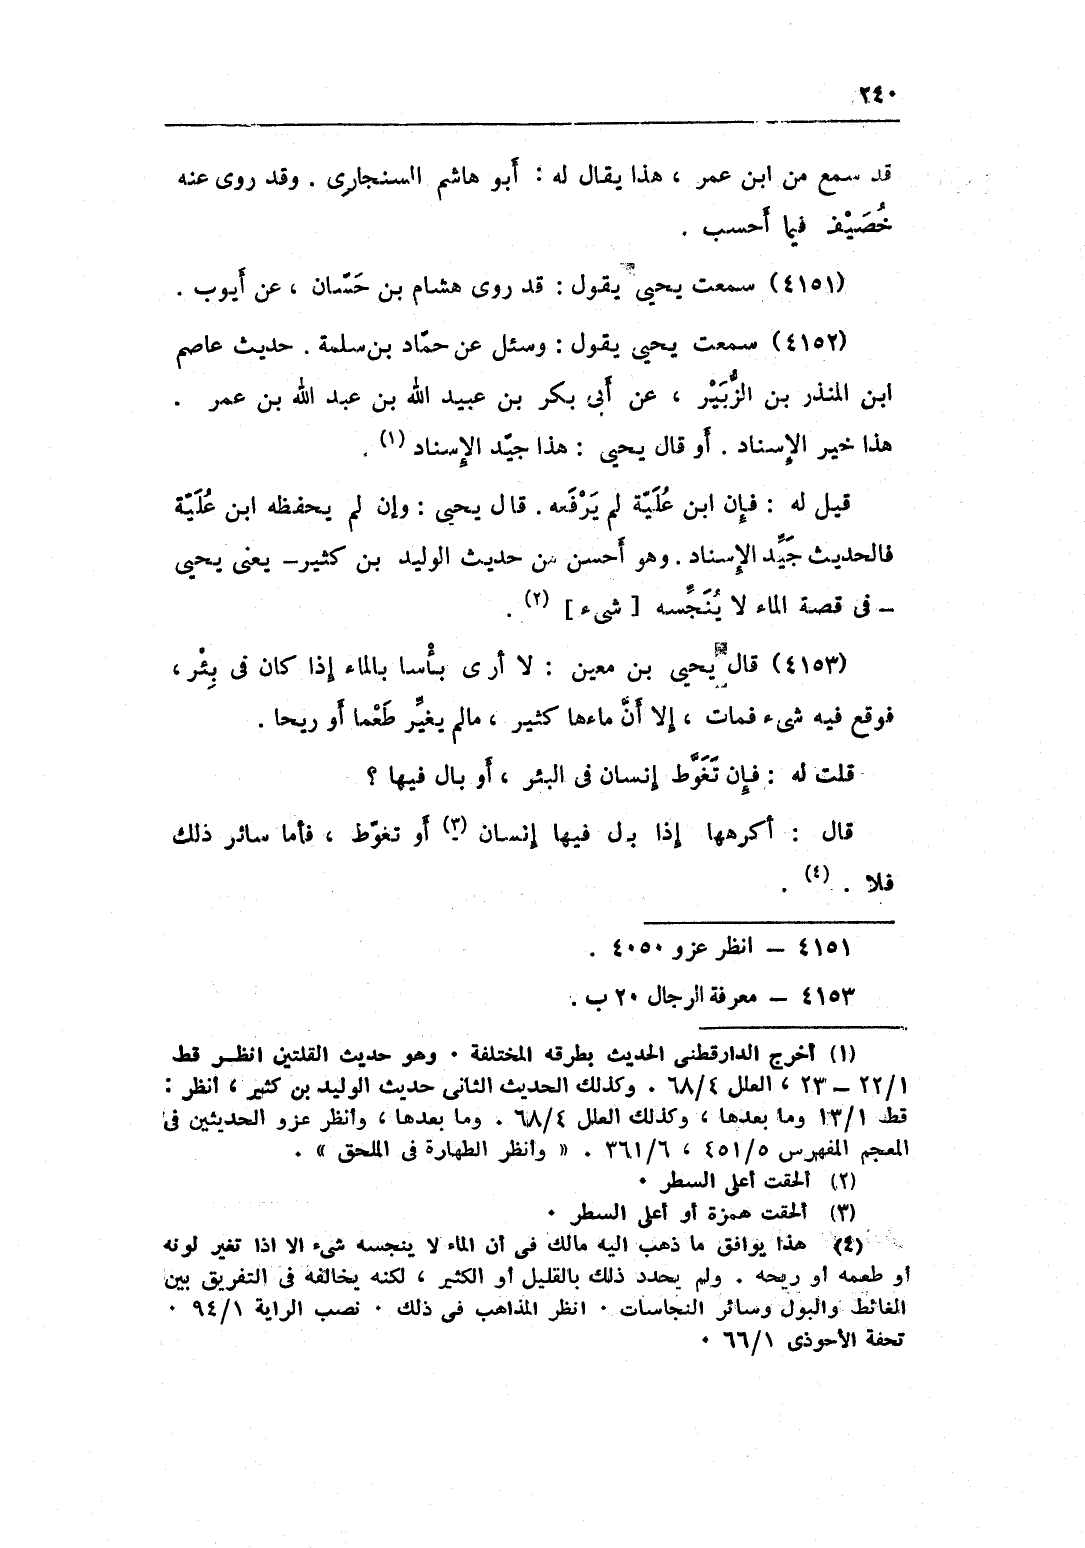 ٢٤٠
قد سمع من ابن عمر ، هذا يقال له : أَبو هاشم السنجارى . وقد روى عنه
خُصَيْف فيما أَحسب .
(٤١٥١) سمعت يحيى يقول : قد روى هشام بن حَسّان ، عن أَيوب .
(٤١٥٢) سمعت يحيى يقول : وسئل عن حمّاد بن سلمة . حديث عاصم
ابن المنذر بن الزُّبَيْر ، عن أَبى بكر بن عبيد الله بن عبد الله بن عمر .
هذا خير الإِسناد . أَو قال يحيى : هذا جيّد الإِسناد (١) .
قيل له : فإِن ابن عُلَيّة لم يَرْفَعه . قال يحيى : وإن لم يحفظه ابن عُلَيّة
فالحديث جَيِّد الإِسناد . وهو أَحسن من حديث الوليد بن كثير – يعنى يحيى
– فى قصة الماء لا يُنَجِّسه [ شىء ] (٢) .
(٤١٥٣) قال يحيى بن معين : لا أرى بأْسا بالماء إذا كان فى بِئْر ،
فوقع فيه شىء فمات ، إلا أَنَّ ماءها كثير ، مالم يغيِّر طَعْما أَو ريحا .
قلت له : فإِن تَغَوَّط إنسان فى البئر ، أَو بال فيها ؟
قال : أكرهها إذا بال فيها إنسان (٣) أَو تغوّط ، فأما سائر ذلك
فلا . (٤) .
٤١٥١ – انظر عزو ٤٠٥٠ .
٤١٥٣ – معرفة الرجال ٢٠ ب .
(١) أخرج الدارقطنى الحديث بطرقه المختلفة . وهو حديث القلتين انظر قط
٢٢/١ – ٢٣ ، العلل ٦٨/٤ . وكذلك الحديث الثانى حديث الوليد بن كثير ، أنظر :
قط ١٣/١ وما بعدها ، وكذلك العلل ٦٨/٤ . وما بعدها ، وأنظر عزو الحديثين فى
المعجم المفهرس ٤٥١/٥ ، ٣٦١/٦ . « وأنظر الطهارة فى الملحق » .
(٢) ألحقت أعلى السطر .
(٣) ألحقت همزة أو أعلى السطر .
(٤) هذا يوافق ما ذهب اليه مالك فى أن الماء لا ينجسه شىء الا اذا تغير لونه
أو طعمه أو ريحه . ولم يحدد ذلك بالقليل أو الكثير ، لكنه يخالفه فى التفريق بين
الغائط والبول وسائر النجاسات . انظر المذاهب فى ذلك . نصب الراية ٩٤/١ .
تحفة الأحوذى ٦٦/١ .